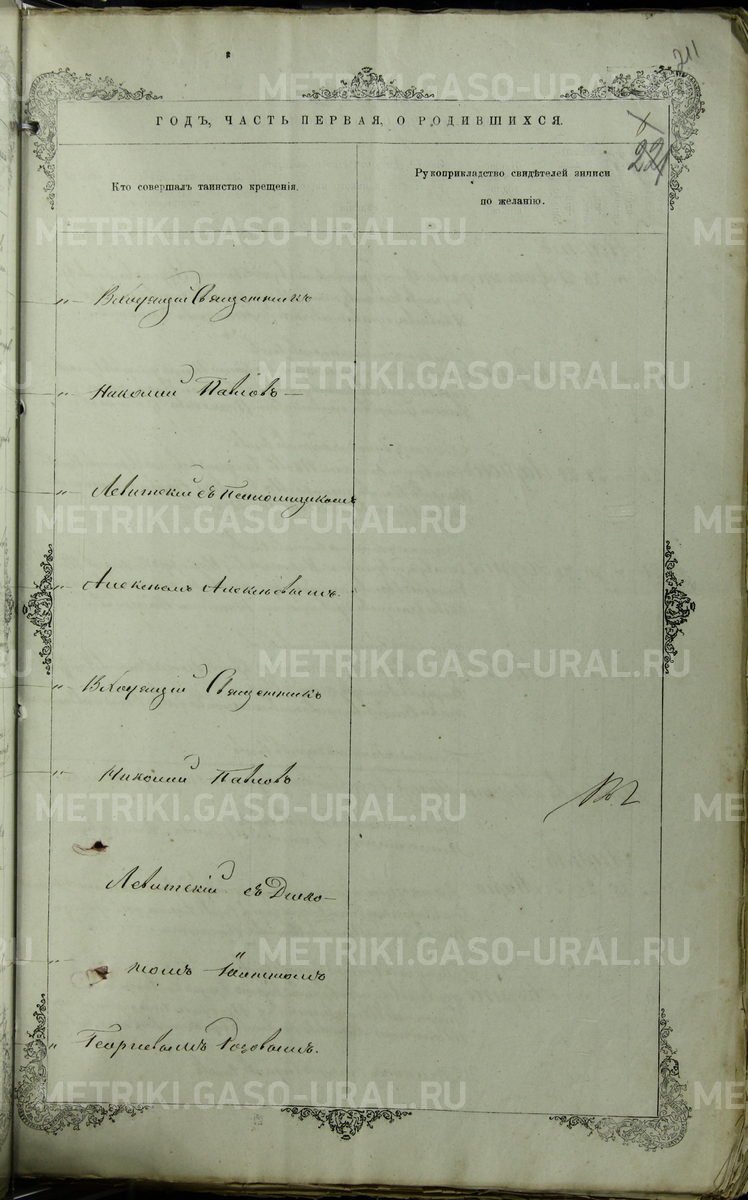 211
ГОДЪ, ЧАСТЬ ПЕРВАЯ, О РОДИВШИХСЯ.
221
Кто совершалъ таинство крещенія.
Рукоприкладство свидѣтелей записи
по желанію.
„ Входящій Священникъ
„ Николай Павловъ —
„ Левитскій съ Псаломщикомъ
„ Алексѣемъ Алексѣевымъ.
„ Входящій Священникъ
„ Николай Павловъ
Левитскій съ Дьяко-
„ номъ
„ Георгіевымъ Розовымъ.
METRIKI.GASO-URAL.RU